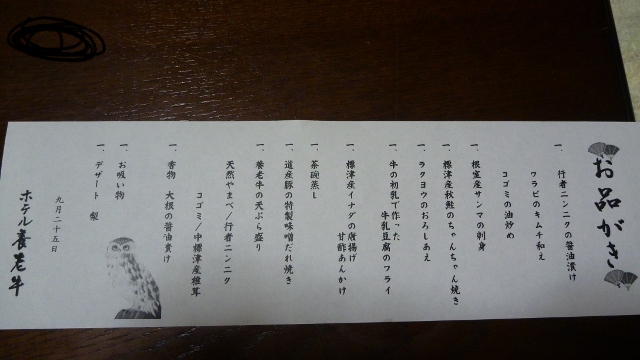 お品がき
一、行者ニンニクの醤油漬け
ワラビのキムチ和え
コゴミの油炒め
一、根室産サンマの刺身
一、標津産秋鮭のちゃんちゃん焼き
一、ラクヨウのおろしあえ
一、牛の初乳で作った
牛乳豆腐のフライ
一、標津産イナダの唐揚げ
甘酢あんかけ
一、茶碗蒸し
一、道産豚の特製味噌だれ焼き
一、養老牛の天ぷら盛り
天然やまべ/行者ニンニク
コゴミ/中標津産椎茸
一、香物 大根の醤油漬け
一、お吸い物
一、デザート 梨
九月二十五日
ホテル養老牛